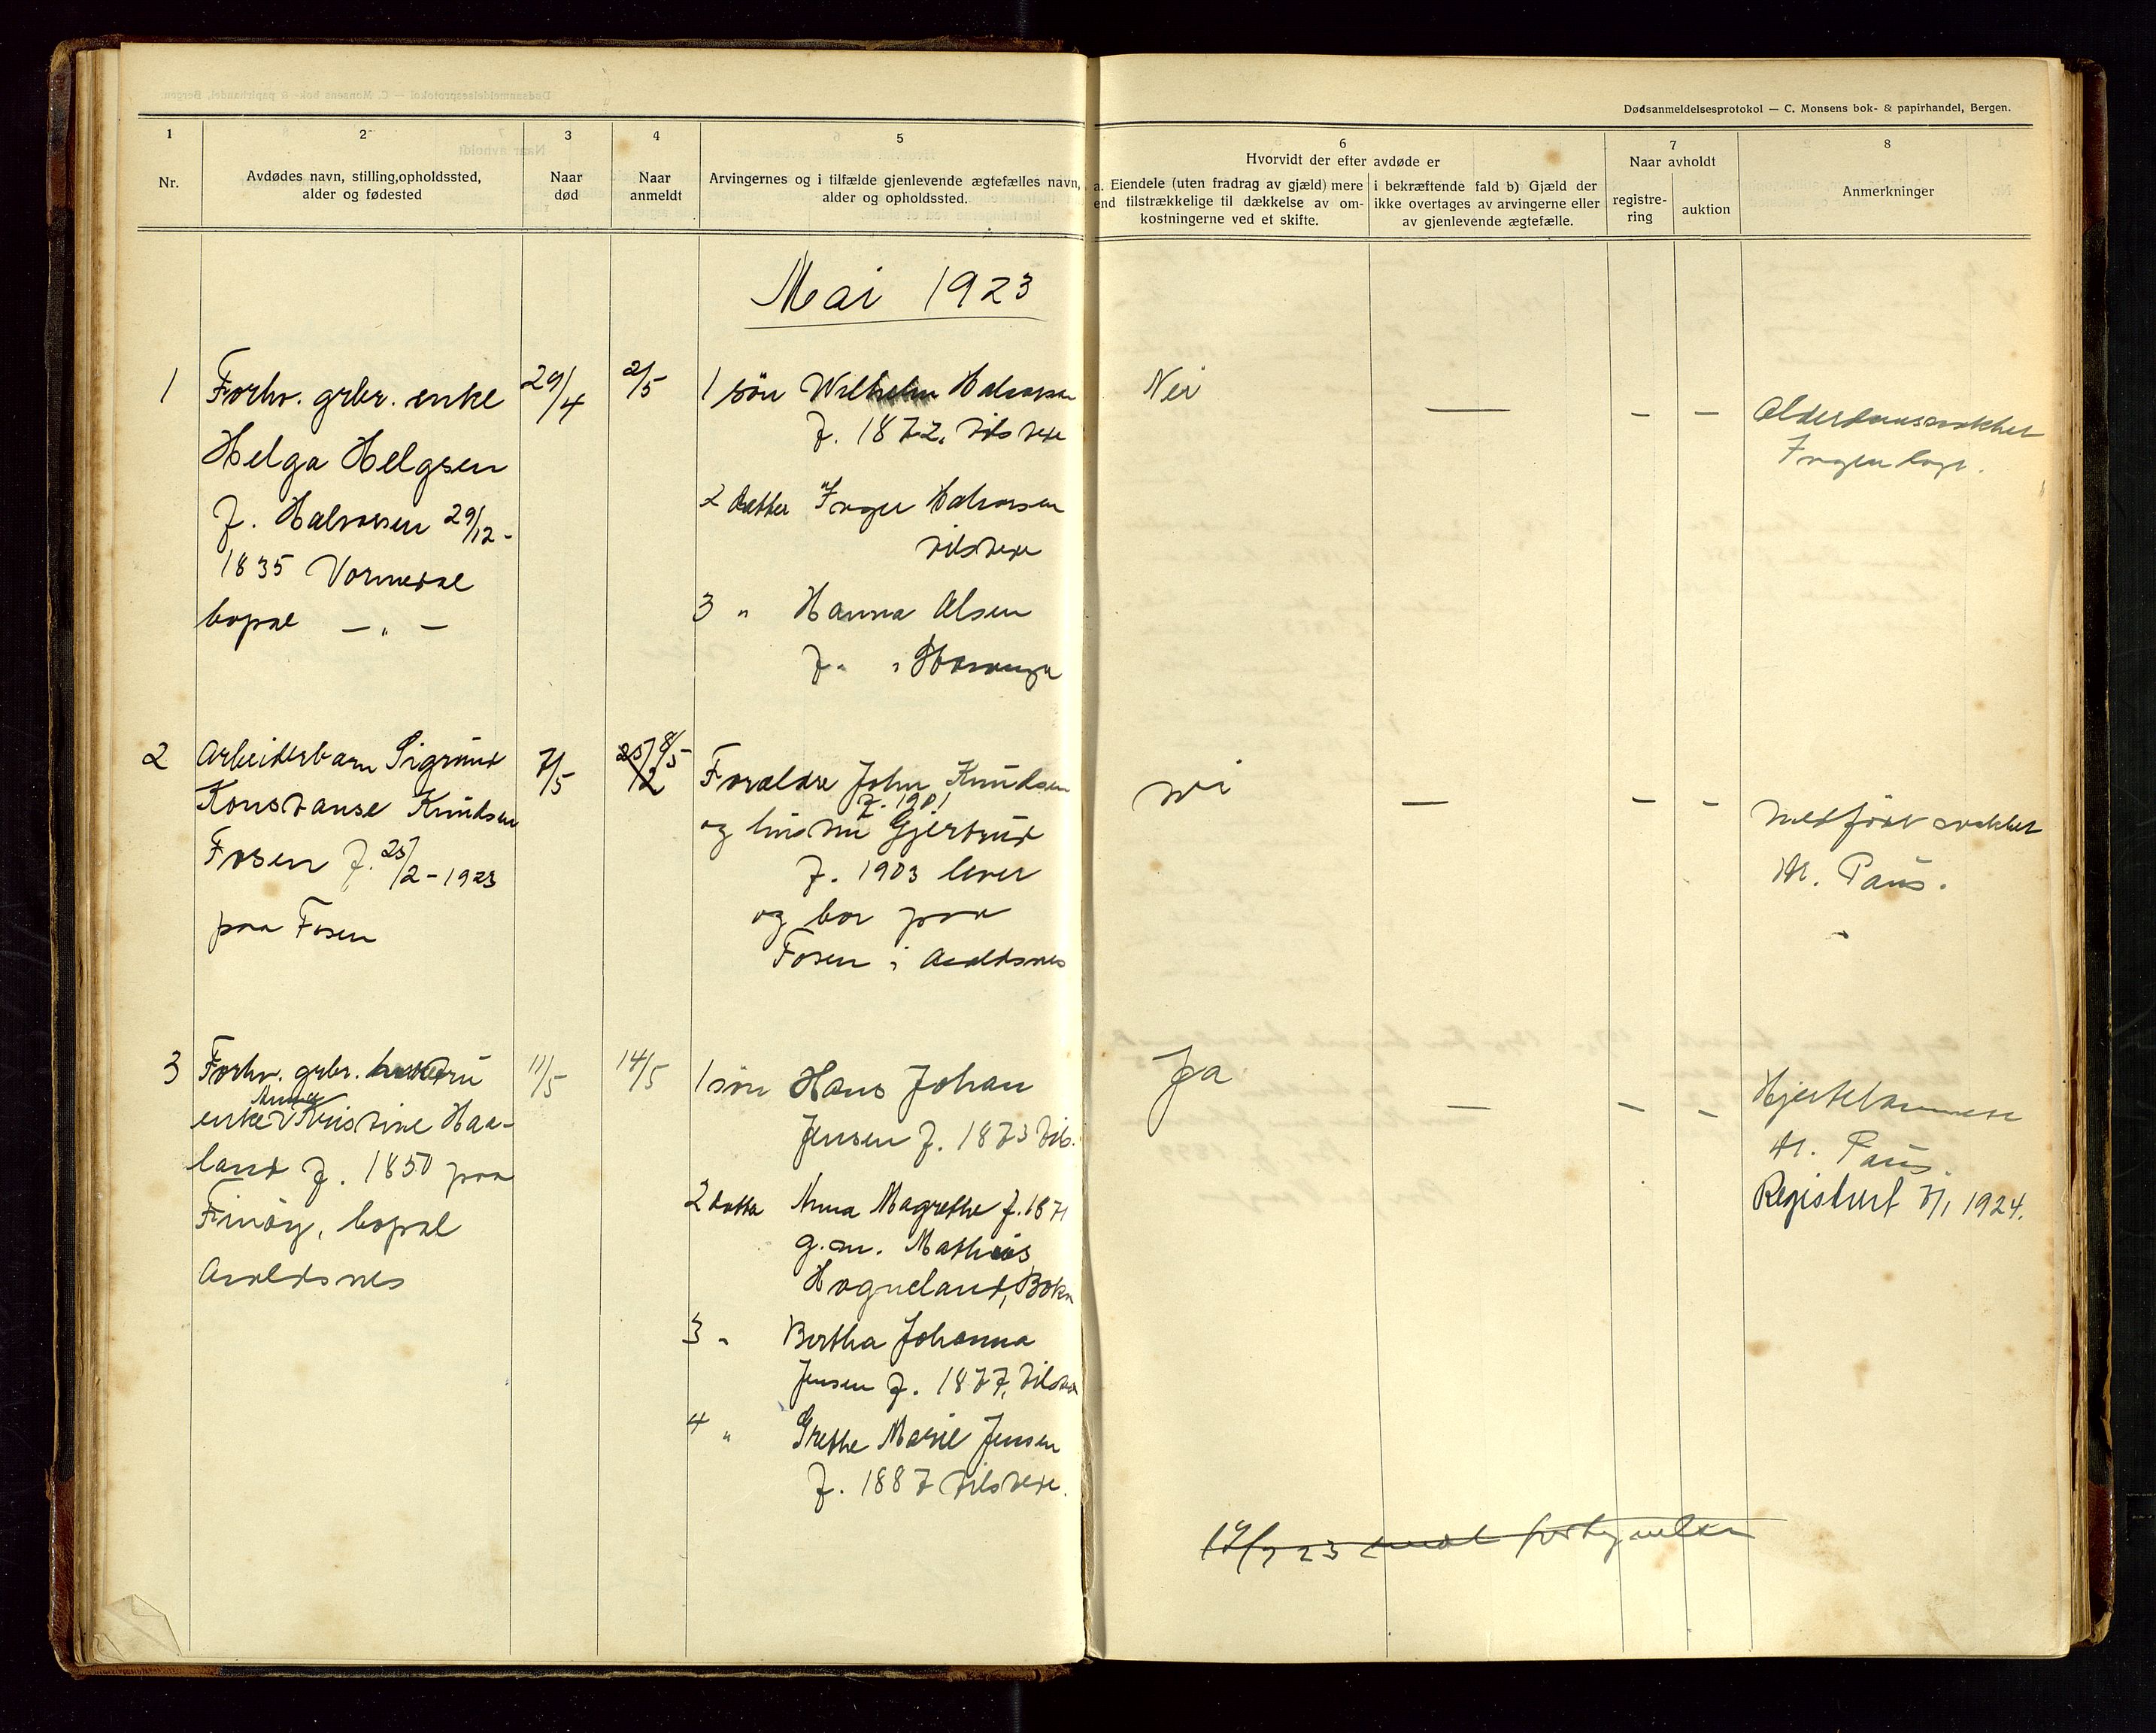 Dødsanmeldelsesprotokol — C. Monsens bok- & papirhandel, Bergen.
1
2
3
4
5
6
7
8
Nr.
Avdødes navn, stilling, opholdssted,
alder og fødested
Naar
død
Naar
anmeldt
Arvingernes og i tilfælde gjenlevende ægtefælles navn,
alder og opholdssted.
Hvorvidt der efter avdøde er
a. Eiendele (uten fradrag av gjæld) mere
end tilstrækkelige til dækkelse av om-
kostningerne ved et skifte.
i bekræftende fald b) Gjæld der
ikke overtages av arvingerne eller
av gjenlevende ægtefælle.
Naar avholdt
registre-
ring
auktion
Anmerkninger
Mai 1923
1
Forhv. grbr. enke
Helga Helgsen
f. Halvorsen 29/12-
1835 Vormedal
bopæl — " —
29/4
2/5
1 sön Wilhelm Halvorsen
f. 1872. tilstede
2 datter Inger Halvorsen
tilstede
3 " Hanna Olsen
f. "
Nei
—
—
—
Alderdomssvakhet
Ingen læge.
2
Arbeiderbarn Sigrund
Konstanse Knudsen
Fosen f. 25/2-1923
paa Fosen
7/5
25/2 8/5
Forældre John Knudsen
f. 1901
og hustru Gjertrud
f. 1903 lever
og bor paa
Fosen i Avaldsnes
nei
—
—
—
Medfödt svakhet
Dr. Paus.
3
Forhv. grbr.
enke Anna Kristine Haa-
land f. 1850 paa
Finöy, bopæl
Avaldsnes
11/5
14/5
1 sön Hans Johan
Jensen f. 1873 tils.
2 datter Anna Magrethe f. 1871
g.m. Mathias
Hogneland, Bokn
3 " Bertha Johanna
Jensen f. 1877, tilstede
4 " Grethe Marie Jensen
f. 1887 tilstede.
Ja
—
—
—
Hjertelammelse
Dr. Paus.
Registrert 7/1 1924.